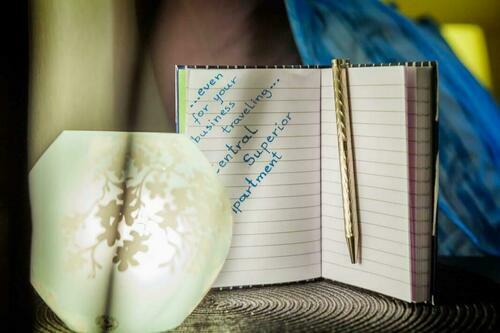 ...even
for your
business
traveling...
entral
Superior
partment